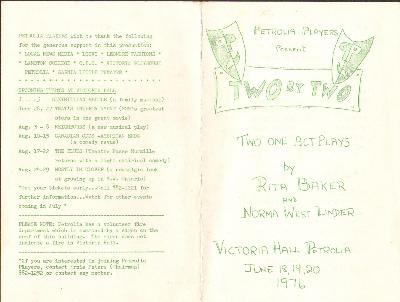 PETROLIA PLAYERS wish to thank the following
for the generous support in this production:
* LOCAL NEWS MEDIA * LEONARD FASHIONS *
* LAMBTON OUTDOOR * VICTORIA RESTAURANT
PETROLIA * SARNIA LITTLE THEATRE *
UPCOMING EVENTS AT VICTORIA HALL
(a family musical)
June 26, 27 THAT'S ENTERTAINMENT (MGM's greatest
stars in one great movie)
Aug. 3 - 8 (a new musical play)
Aug. 10-15 CANADIAN GOTHIC - AMERICAN MODERN
(a comedy revue)
Aug. 17-22 (Theatre Passe Muraille
returns with a comedy)
Aug. 24-29 (a nostalgic look
at growing up in Ontario)
* Get your tickets early...Call 882-1221 for
further information...Watch for other events
coming in July *
PLEASE NOTE: Petrolia has a volunteer fire
department which is summoned by a siren on the
roof of this building. The siren does not
indicate a fire in Victoria Hall.
*If you are interested in joining Petrolia
Players, contact Craig Peters (Chairman)
882-1292 or contact any member.
PETROLIA PLAYERS
Present
TWO BY TWO
TWO ONE ACT PLAYS
by
RITA BAKER
AND
NORMA WEST LINDER
VICTORIA HALL PETROLIA
JUNE 18, 19, 20
1976